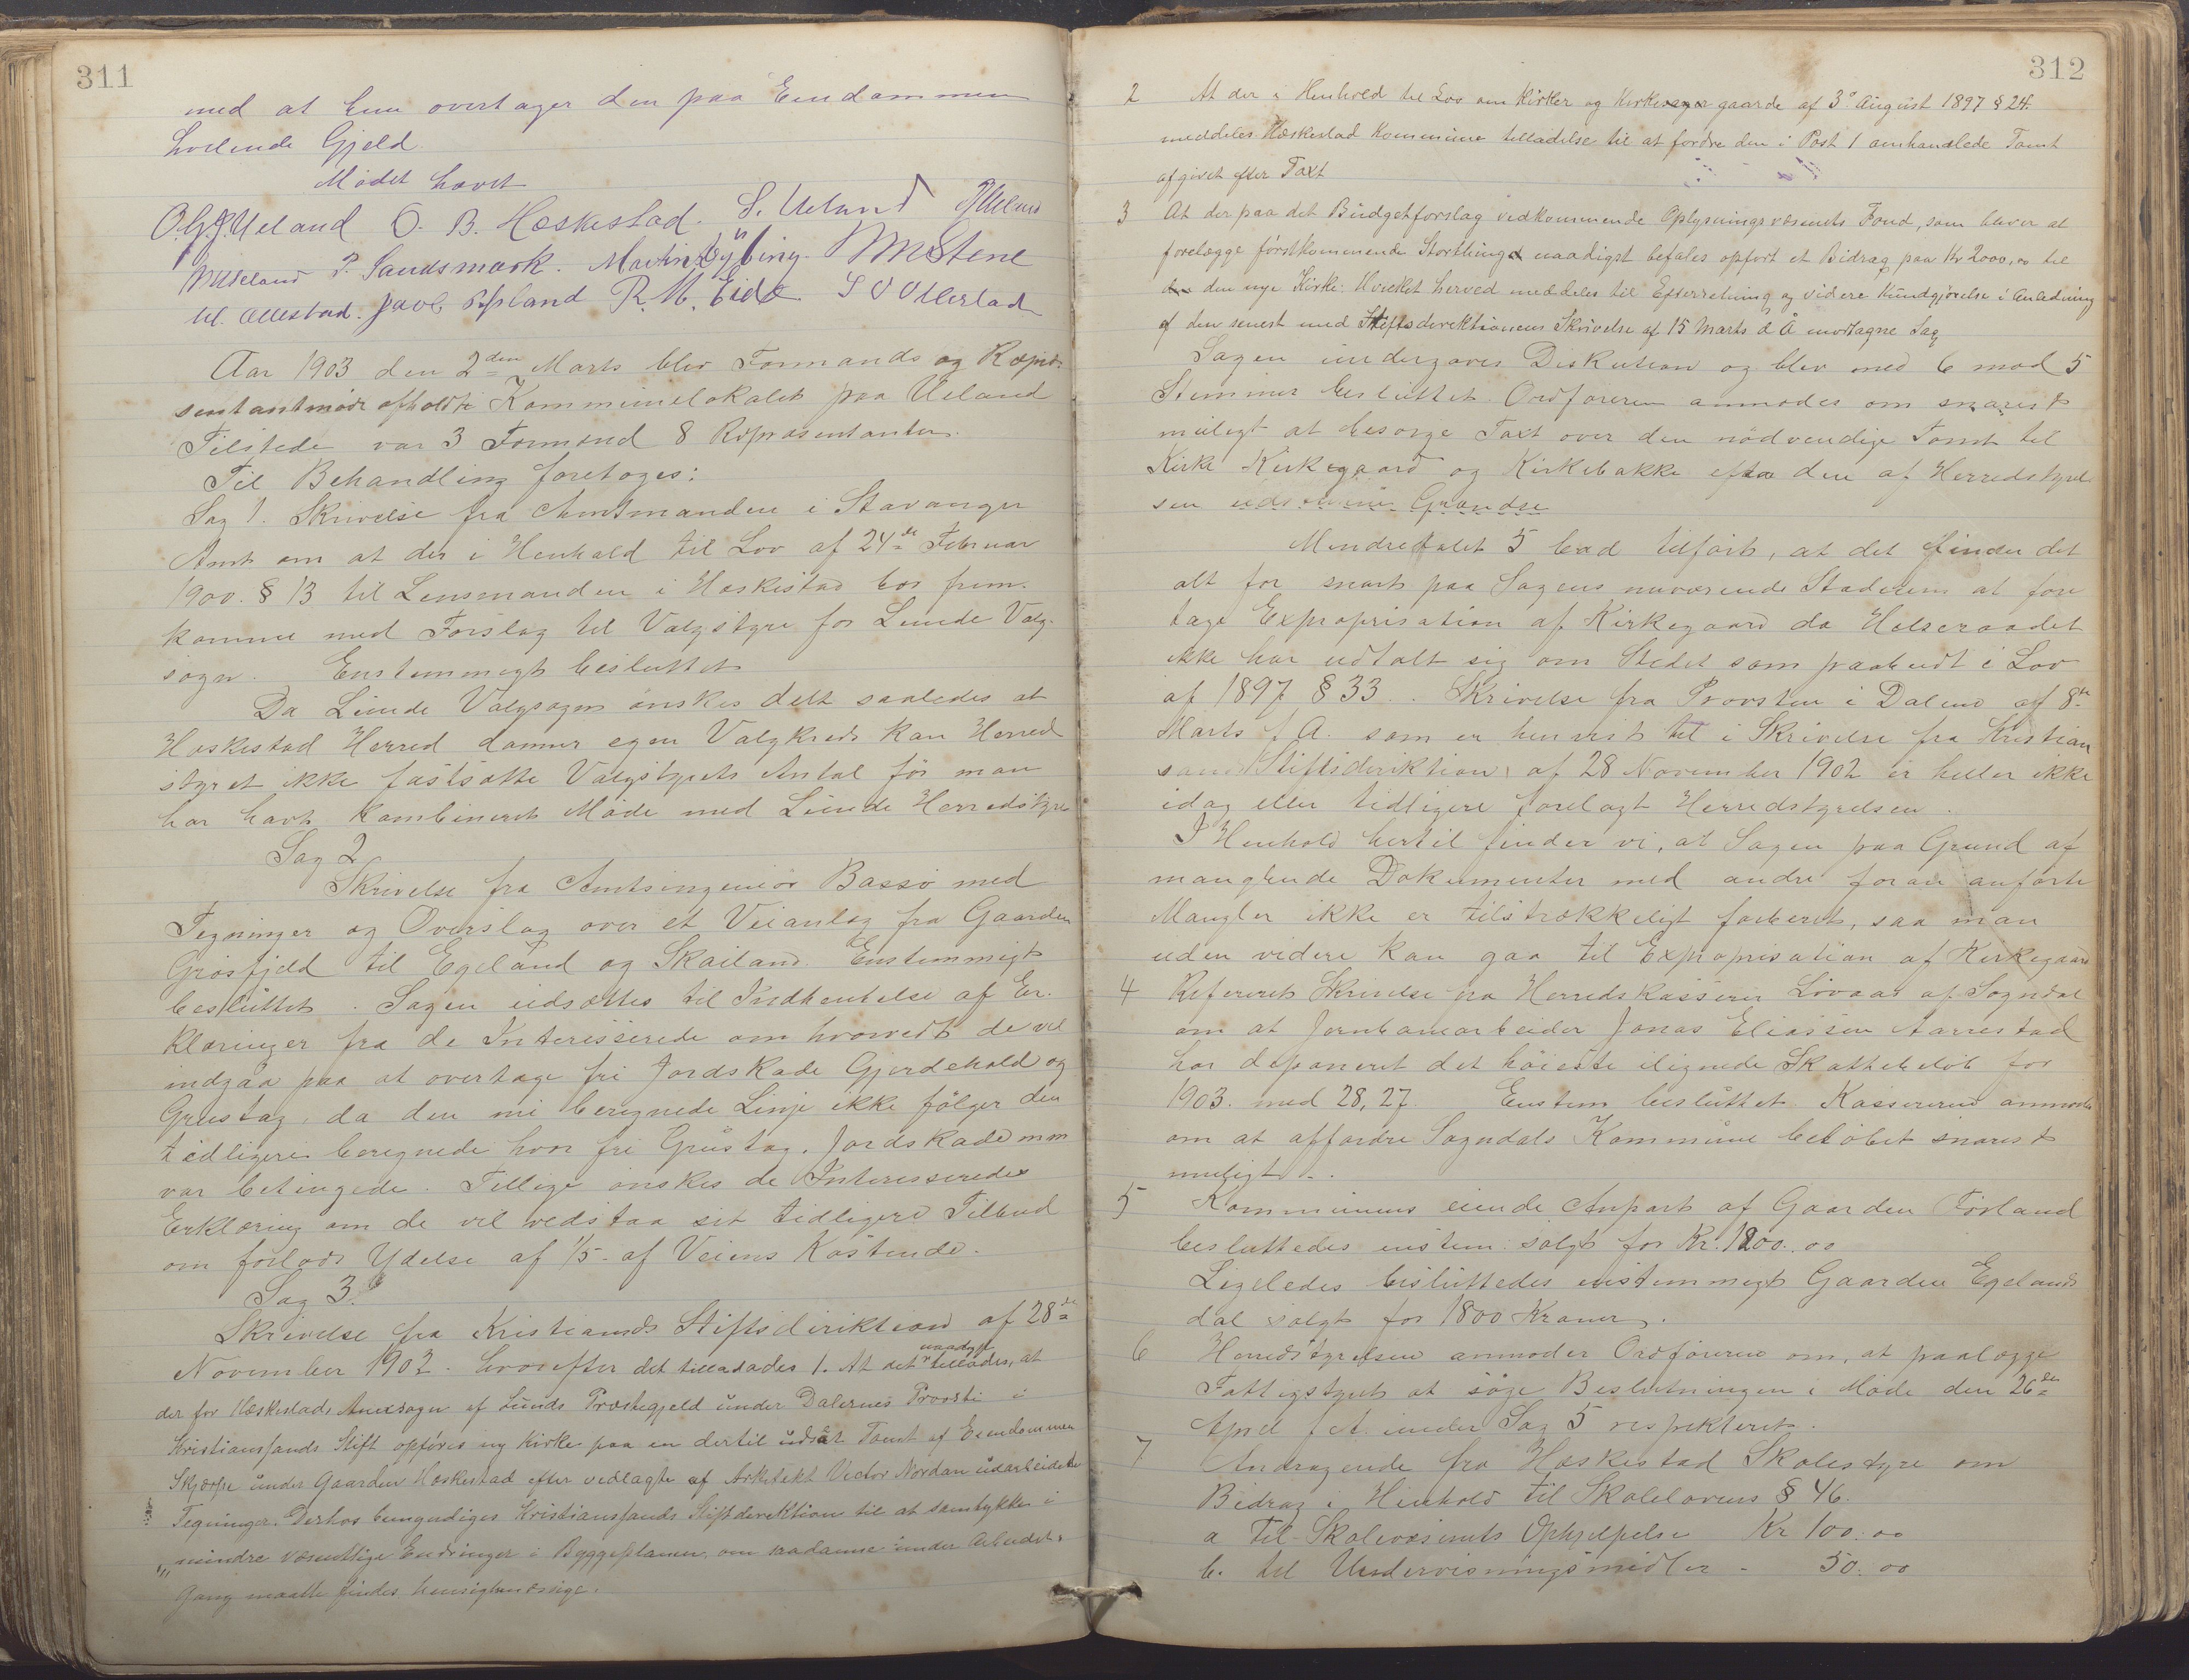 311
med at hun overtager den paa Eiendommen
hvilende Gjeld.
Mödet hævet
O. G. J. Ueland O. B. Hæskestad. S. Ueland
P. Sandsmark. Martin
Ollestad. R. M. Eide
Aar 1903 den 2den Marts blev Formands og Repræ-
sentantmöde afholdt i Kommunelokalet paa Ueland
Tilstede var 3 Formænd 8 Repræsentanter.
Til Behandling foretoges:
Sag 1. Skrivelse fra Amtmanden i Stavanger
Amt om at der i Henhold til Lov af 24de Februar
1900. § 13 til Lensmanden i Hæskestad bør frem-
komme med Forslag til Valgstyre for Lunde Valg-
sogn. Enstemmigt besluttet
Da Lunde Valgsogn önskes delt saaledes at
Hæskestad Herred danner egen Valgkreds kan Herred
styret ikke fastsætte Valgstyrets Antal för man
har havt kombineret Möde med Lunde Herredstyre
Sag 2
Skrivelse fra Amtsingeniör Bassö med
Tegninger og Overslag over et Veianlæg fra Gaarden
Grösfjeld til Egeland og Skailand. Enstemmigt
besluttet. Sagen udsættes til Indhentelse af Er-
klæringer fra de Interesserede om hvorvidt de vil
indgaa paa at overtage fri Jordskade Gjerdehold og
Grustag, da den nu beregnede Linje ikke fölger den
tidligere beregnede hvor fri Grustag, Jordskade m m
var betingede. Tillige önskes de Interesseredes
Erklæring om de vil vedstaa sit tidligere Tilbud
om forlods Ydelse af 1/5 af Veiens Kostende.
Sag 3.
Skrivelse fra Kristiansds Stiftsdirektion af 28de
November 1902. hvorefter det tilladades 1. At det naadigst tillades, at
der for Hæskestads Anexsogn af Lunds Præstegjeld under Dalernes Provsti i
Kristiansands Stift opföres ny Kirke paa en dertil udsat Tomt af Eiendommen
Skjærpe under Gaarden Hæskestad efter vedlagte af Arkitekt Victor Nordan udarbeidede
Tegninger. Derhos bemyndiges Kristiansands Stiftdirektion til at samtykke i
mindre væsentlige Endringer i Byggeplanen, om saadanne under Arbeidets
Gang maatte findes hensigtmæssige.
312
2 At der i Henhold til Lov om Kirker og Kirkegaarde af 3e August 1897 § 24.
meddeles Hæskestad Kommune tilladelse til at fordre den i Post 1 omhandlede Tomt
afgivet efter Taxt
3 At der paa det Budgetforslag vedkommende Oplysningsvæsenets Fond, som bliver at
forelægge förstkommende Storthing naadigst befales opfört et Bidrag paa Kr 2000,00 til
den nye Kirke. Hvilket herved meddeles til Efterretning og videre Kundgjörelse i Anledning
af den senest med Stiftsdirektionens Skrivelse af 15 Marts d Å modtagne Sag
Sagen undergaves Diskution og blev med 6 mod 5
Stemmer besluttet. Ordföreren anmodes om snarest
muligt at besörge Taxt over den nödvendige Tomt til
Kirke Kirkegaard og Kirkebakke efter den af Herredstyrel
sen Grændse
Mindretalet 5 bad tilfört, at det finder det
alt for snart paa Sagens nuværende Stadium at fore
tage Expropriation af Kirkegaard da Helseraadet
ikke har udtalt sig om Stedet som paabudt i Lov
af 1897 § 33. Skrivelse fra Provsten i Dalene af 8de
Marts f A. som er henvist til i Skrivelse fra Kristian
sands Stiftsdirektion af 28 November 1902 er heller ikke
idag eller tidligere forelagt Herredstyrelsen.
I Henhold hertil finder vi, at Sagen paa Grund af
manglende Dokumenter med andre foran anförte
Mangler ikke er tilstrækkeligt forberet, saa man
uden videre kan gaa til Expropriation af Kirkegaard
4 Refereret Skrivelse fra Herredskasserer Lövaas af Sogndal
om at Jernbanearbeider Jonas Eliassen Aarrestad
har deponeret det höieste ilignede Skattebelöb for
1903. med 28,27. Enstem besluttet. Kassereren anmodes
om at affordre Sogndals Kommune belöbet snarest
muligt.
5 Kommunens eiende Anpart af Gaarden Förland
besluttedes enstem: solgt for Kr. 1200.00
Ligeledes besluttedes enstemmigt Gaarden Egelands
dal solgt for 1800 Kroner.
6 Herredstyrelsen anmoder Ordföreren om, at paalægge
Fattigstyret at söge Beslutningen i Möde den 26de
April f A. under Sag 5 respekteret.
7 Andragende fra Hæskestad Skolestyre om
Bidrag i Henhold til Skolelovens § 46.
a Til Skolevæsenets Ophjelpelse Kr 100.00
b. til Undervisningsmidler - 50.00